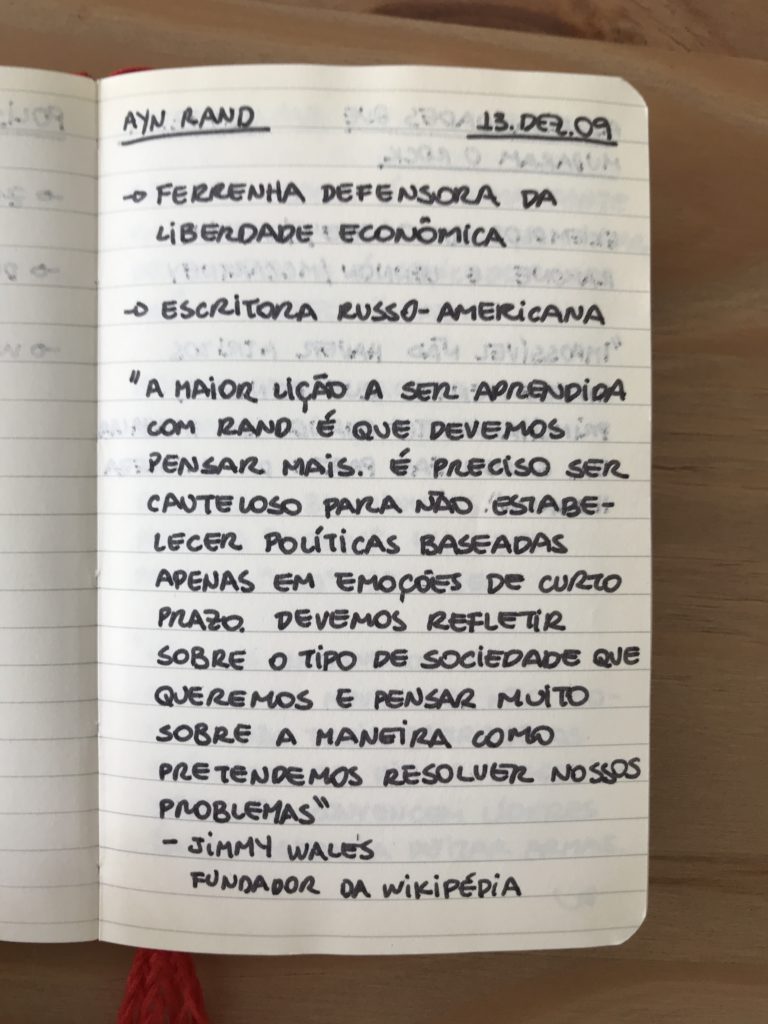 AYN RAND 13. DEZ. 09
→ FERRENHA DEFENSORA DA
LIBERDADE ECONÔMICA
→ ESCRITORA RUSSO-AMERICANA
"A MAIOR LIÇÃO A SER APRENDIDA
COM RAND É QUE DEVEMOS
PENSAR MAIS. É PRECISO SER
CAUTELOSO PARA NÃO ESTABE-
LECER POLÍTICAS BASEADAS
APENAS EM EMOÇÕES DE CURTO
PRAZO. DEVEMOS REFLETIR
SOBRE O TIPO DE SOCIEDADE QUE
QUEREMOS E PENSAR MUITO
SOBRE A MANEIRA COMO
PRETENDEMOS RESOLVER NOSSOS
PROBLEMAS"
- JIMMY WALES
FUNDADOR DA WIKIPÉDIA